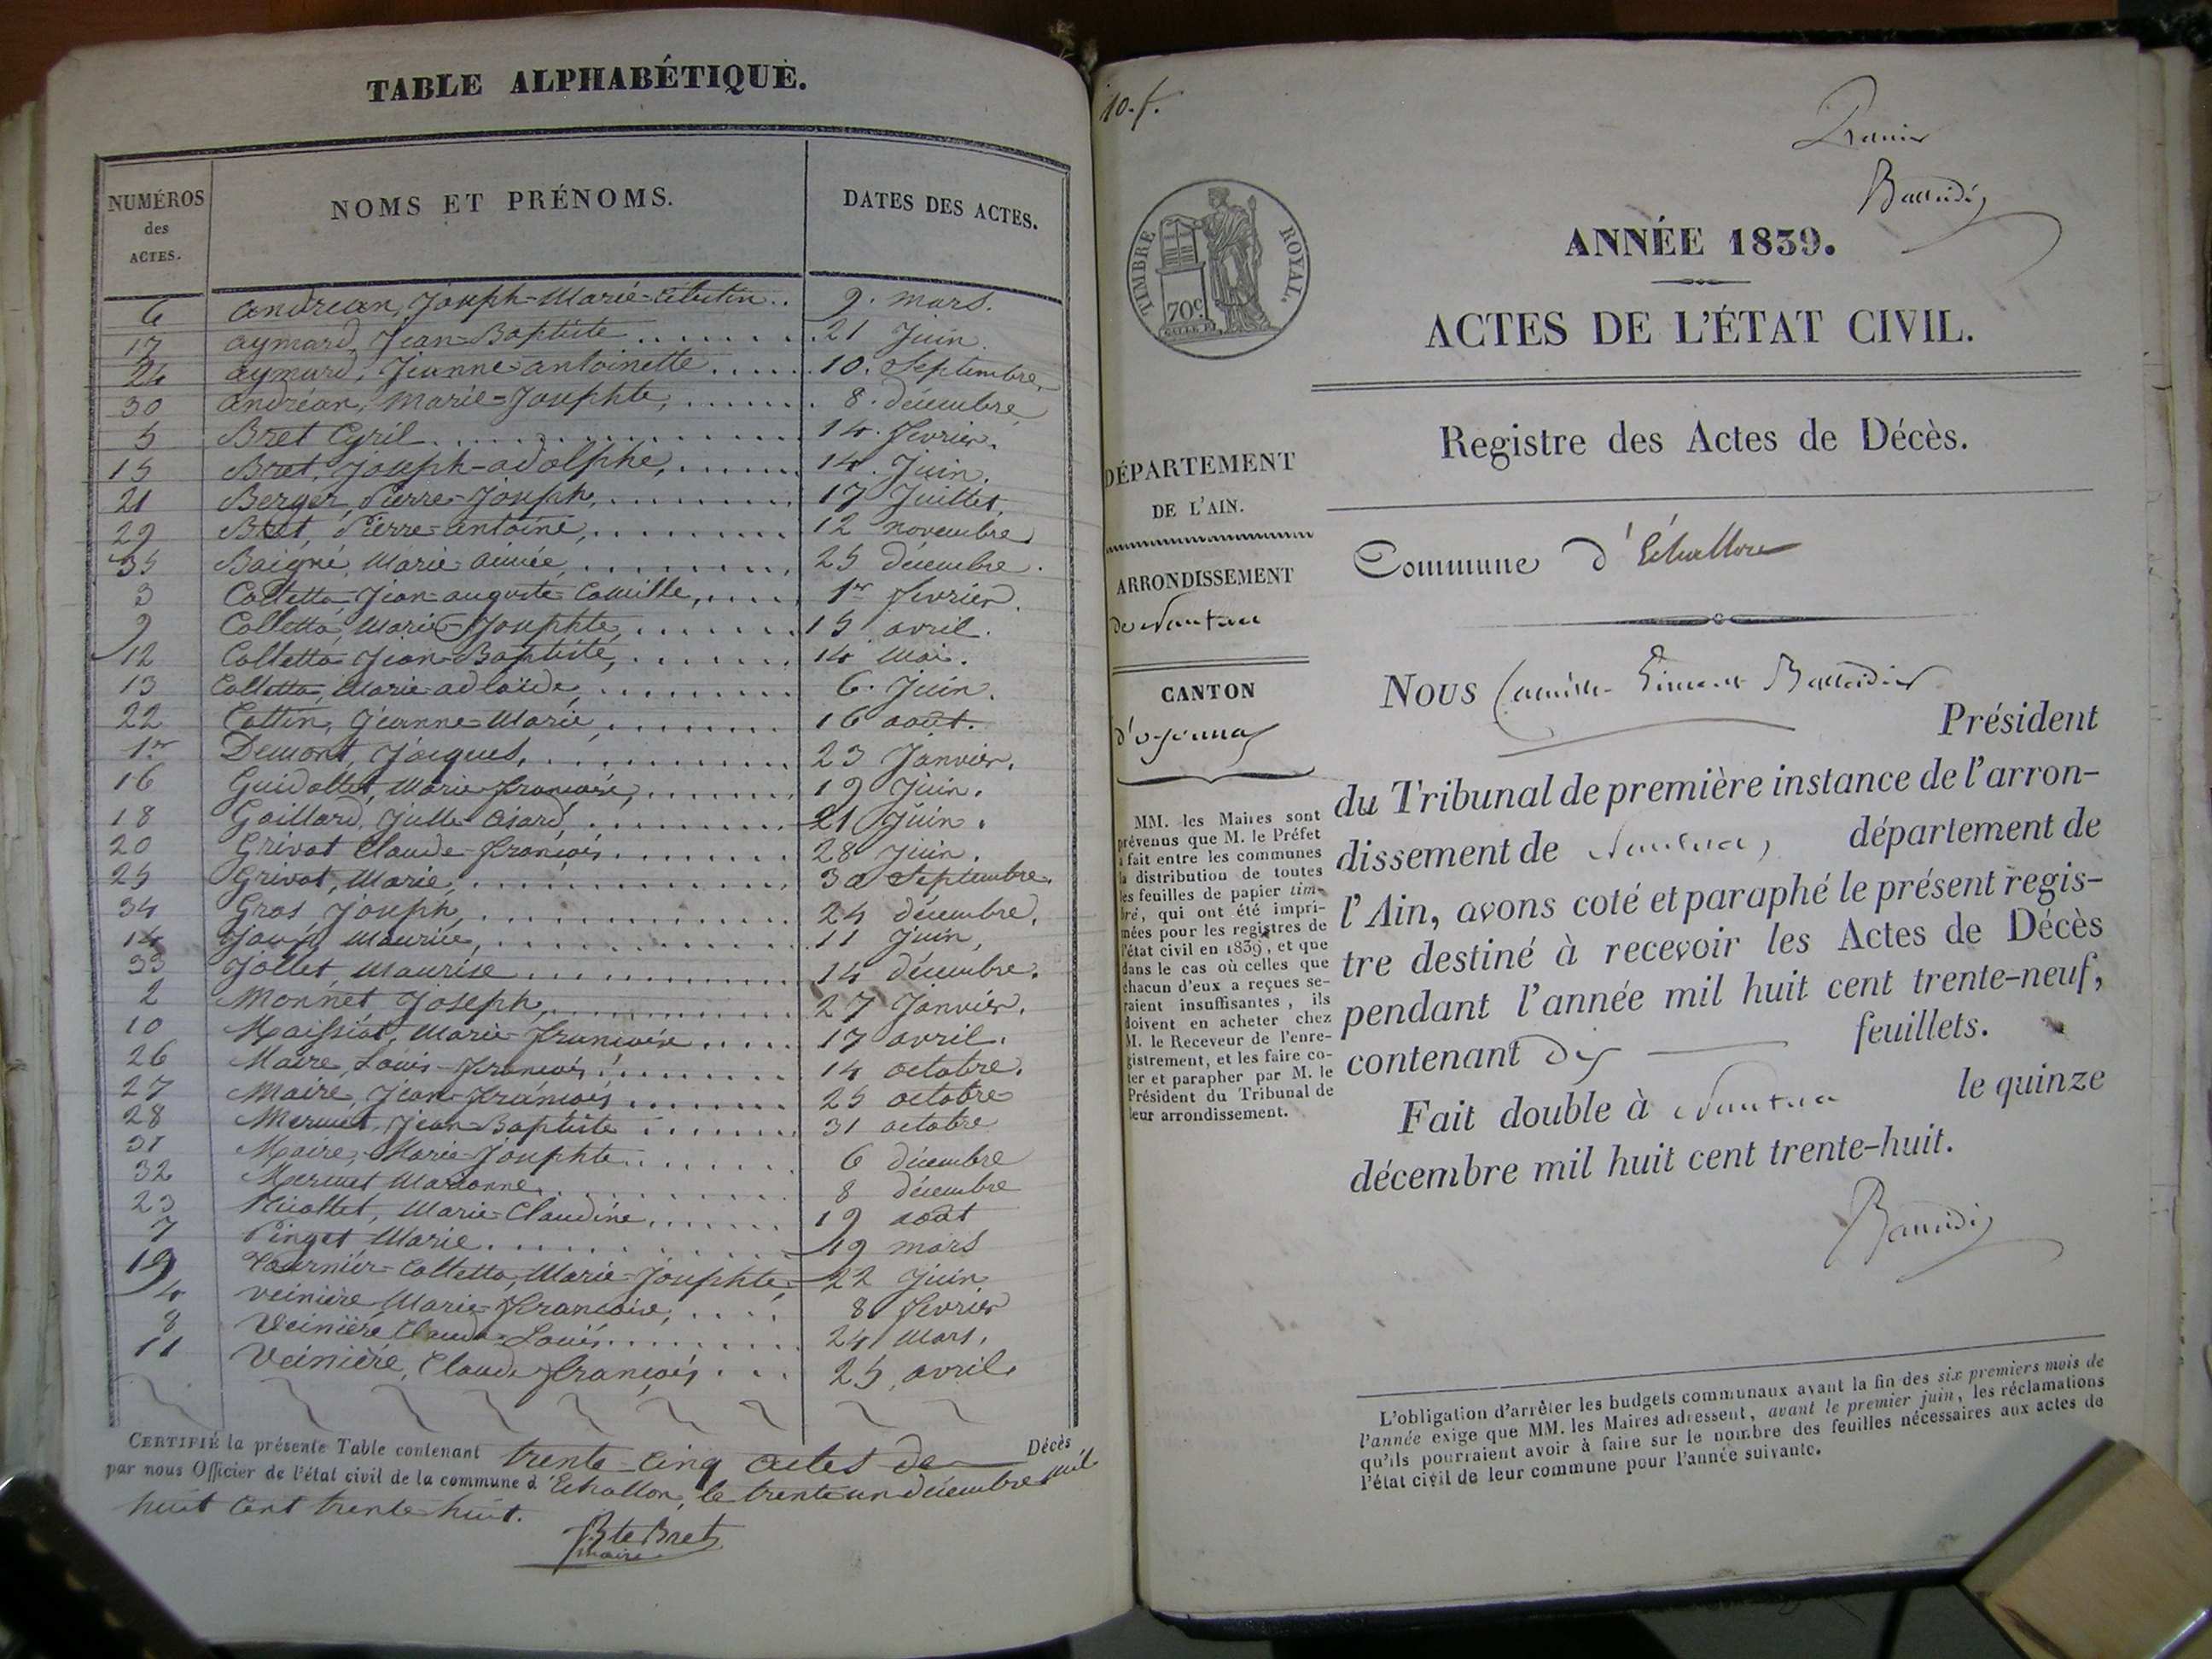 TABLE ALPHABÉTIQUE.
NUMÉROS des ACTES. NOMS ET PRÉNOMS. DATES DES ACTES.
6 Andréan, Joseph-Marie-Célestin.. 9. mars.
17 aymard, Jean-Baptiste ........ 21 Juin.
24 aymard, Jeanne-antoinette ..... 10. Septembre.
30 andréan, Marie-Josephte, ....... 8. décembre
5 Bret Cyril .............. 14. fevrier.
15 Bret, Joseph-adolphe, ...... 14. Juin.
21 Berger, Pierre-Joseph, ........ 17 Juillet.
29 Bret, Pierre-antoine, ......... 12 novembre
35 Baigné, Marie aimée, ......... 25 décembre.
3 Colletta Jean-auguste-Camille, ..... 1er fevrier.
9 Colletta, Marie-Josephte, ....... 15 avril.
12 Colletta Jean-Baptiste, ....... 14 Mai.
13 Colletta, Marie adlaïde, ........ 6. Juin.
22 Cottin, Jeanne-Marie, ....... 16 août.
1er Demont, Jacques, ............ 23 Janvier.
16 Guidollet, Marie-françoise, ....... 19 Juin.
18 Gaillard, Julle Cisard, ......... 21 Juin.
20 Grivot Claude-françois ........ 28 Juin.
25 Grivot, Marie, ............. 30 Septembre.
34 Gros Joseph, ............. 24 décembre.
14 Maurice, ............ 11 Juin,
33 Jollet, Maurise ............ 14 décembre.
2 Monnet Joseph, ........... 27 Janvier.
10 Maissiat, Marie-françoise ..... 17 avril.
26 Maire, Louis-françois ......... 14 octobre.
27 Maire, Jean-françois ........ 25 octobre
28 Mermet, Jean-Baptiste ....... 31 octobre
31 Maire, Marie-Josephte ....... 6 décembre
32 Mermet Marianne ......... 8 décembre
23 Nicollet, Marie-Claudine ...... 19 août
7 Pinget Marie ........... 19 mars
19 Tournier-Colletta, Marie-Josephte, 22 Juin
4 Veinière Marie-françoise, .... 8 fevrier
8 Veinière Claude-Louis ........ 24 Mars.
11 Veinière, Claude françois ... 25 avril.
CERTIFIÉ la présente Table contenant trente-cinq actes de Décès,
par nous Officier de l'état civil de la commune d'Echallon, le trente un décembre mil
huit cent trente huit.
Bte Bret
maire
10. f.
TIMBRE ROYAL.
70c
ANNÉE 1839.
ACTES DE L'ÉTAT CIVIL.
Registre des Actes de Décès.
DÉPARTEMENT
DE L'AIN.
ARRONDISSEMENT
de Nantua
CANTON
d'oyonnax
MM. les Maires sont
prévenus que M. le Préfet
a fait entre les communes
la distribution de toutes
les feuilles de papier tim-
bré, qui ont été impri-
mées pour les registres de
l'état civil en 1839, et que
dans le cas où celles que
chacun d'eux a reçues se-
raient insuffisantes, ils
doivent en acheter chez
M. le Receveur de l'enre-
gistrement, et les faire co-
ter et parapher par M. le
Président du Tribunal de
leur arrondissement.
Commune d'Echallon
Nous Camille
Président
du Tribunal de première instance de l'arron-
dissement de Nantua, département de
l'Ain, avons coté et paraphé le présent regis-
tre destiné à recevoir les Actes de Décès
pendant l'année mil huit cent trente-neuf,
contenant dix feuillets.
Fait double à Nantua le quinze
décembre mil huit cent trente-huit.
L'obligation d'arrêter les budgets communaux avant la fin des six premiers mois de
l'année exige que MM. les Maires adressent, avant le premier juin, les réclamations
qu'ils pourraient avoir à faire sur le nombre des feuilles nécessaires aux actes de
l'état civil de leur commune pour l'année suivante.